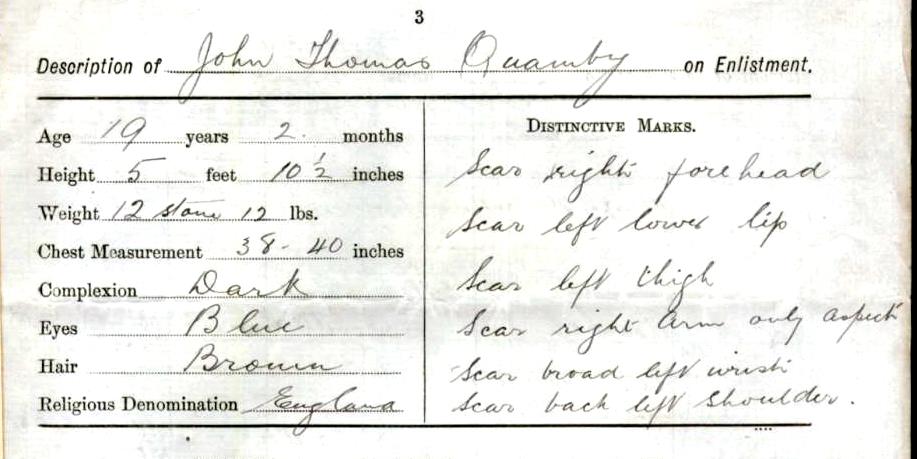 3
Description of John Thomas Quamby on Enlistment.
Age 19 years 2 months
Height 5 feet 10 ½ inches
Weight 12 stone 12 lbs.
Chest Measurement 38 - 40 inches
Complexion Dark
Eyes Blue
Hair Brown
Religious Denomination England
DISTINCTIVE MARKS.
Scar right forehead
Scar left lower lip
Scar left thigh
Scar right arm only aspect
Scar broad left wrist
Scar back left shoulder.